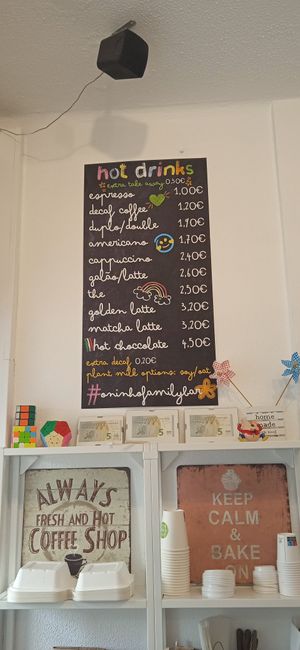 hot drinks
extra take away 0.50€
espresso 1,00€
decaf coffee 1,20€
duplo/double 1,90€
americano 1,70€
cappuccino 2,40€
galão/latte 2,60€
the 2,50€
golden latte 3,20€
matcha latte 3,20€
hot choccolate 4,50€
extra decaf 0,20€
plant milk options: soy/oat
#oninhofamilybar
5
5
5
home
made
ALWAYS
FRESH AND HOT
COFFEE SHOP
KEEP
CALM
&
BAKE
ON